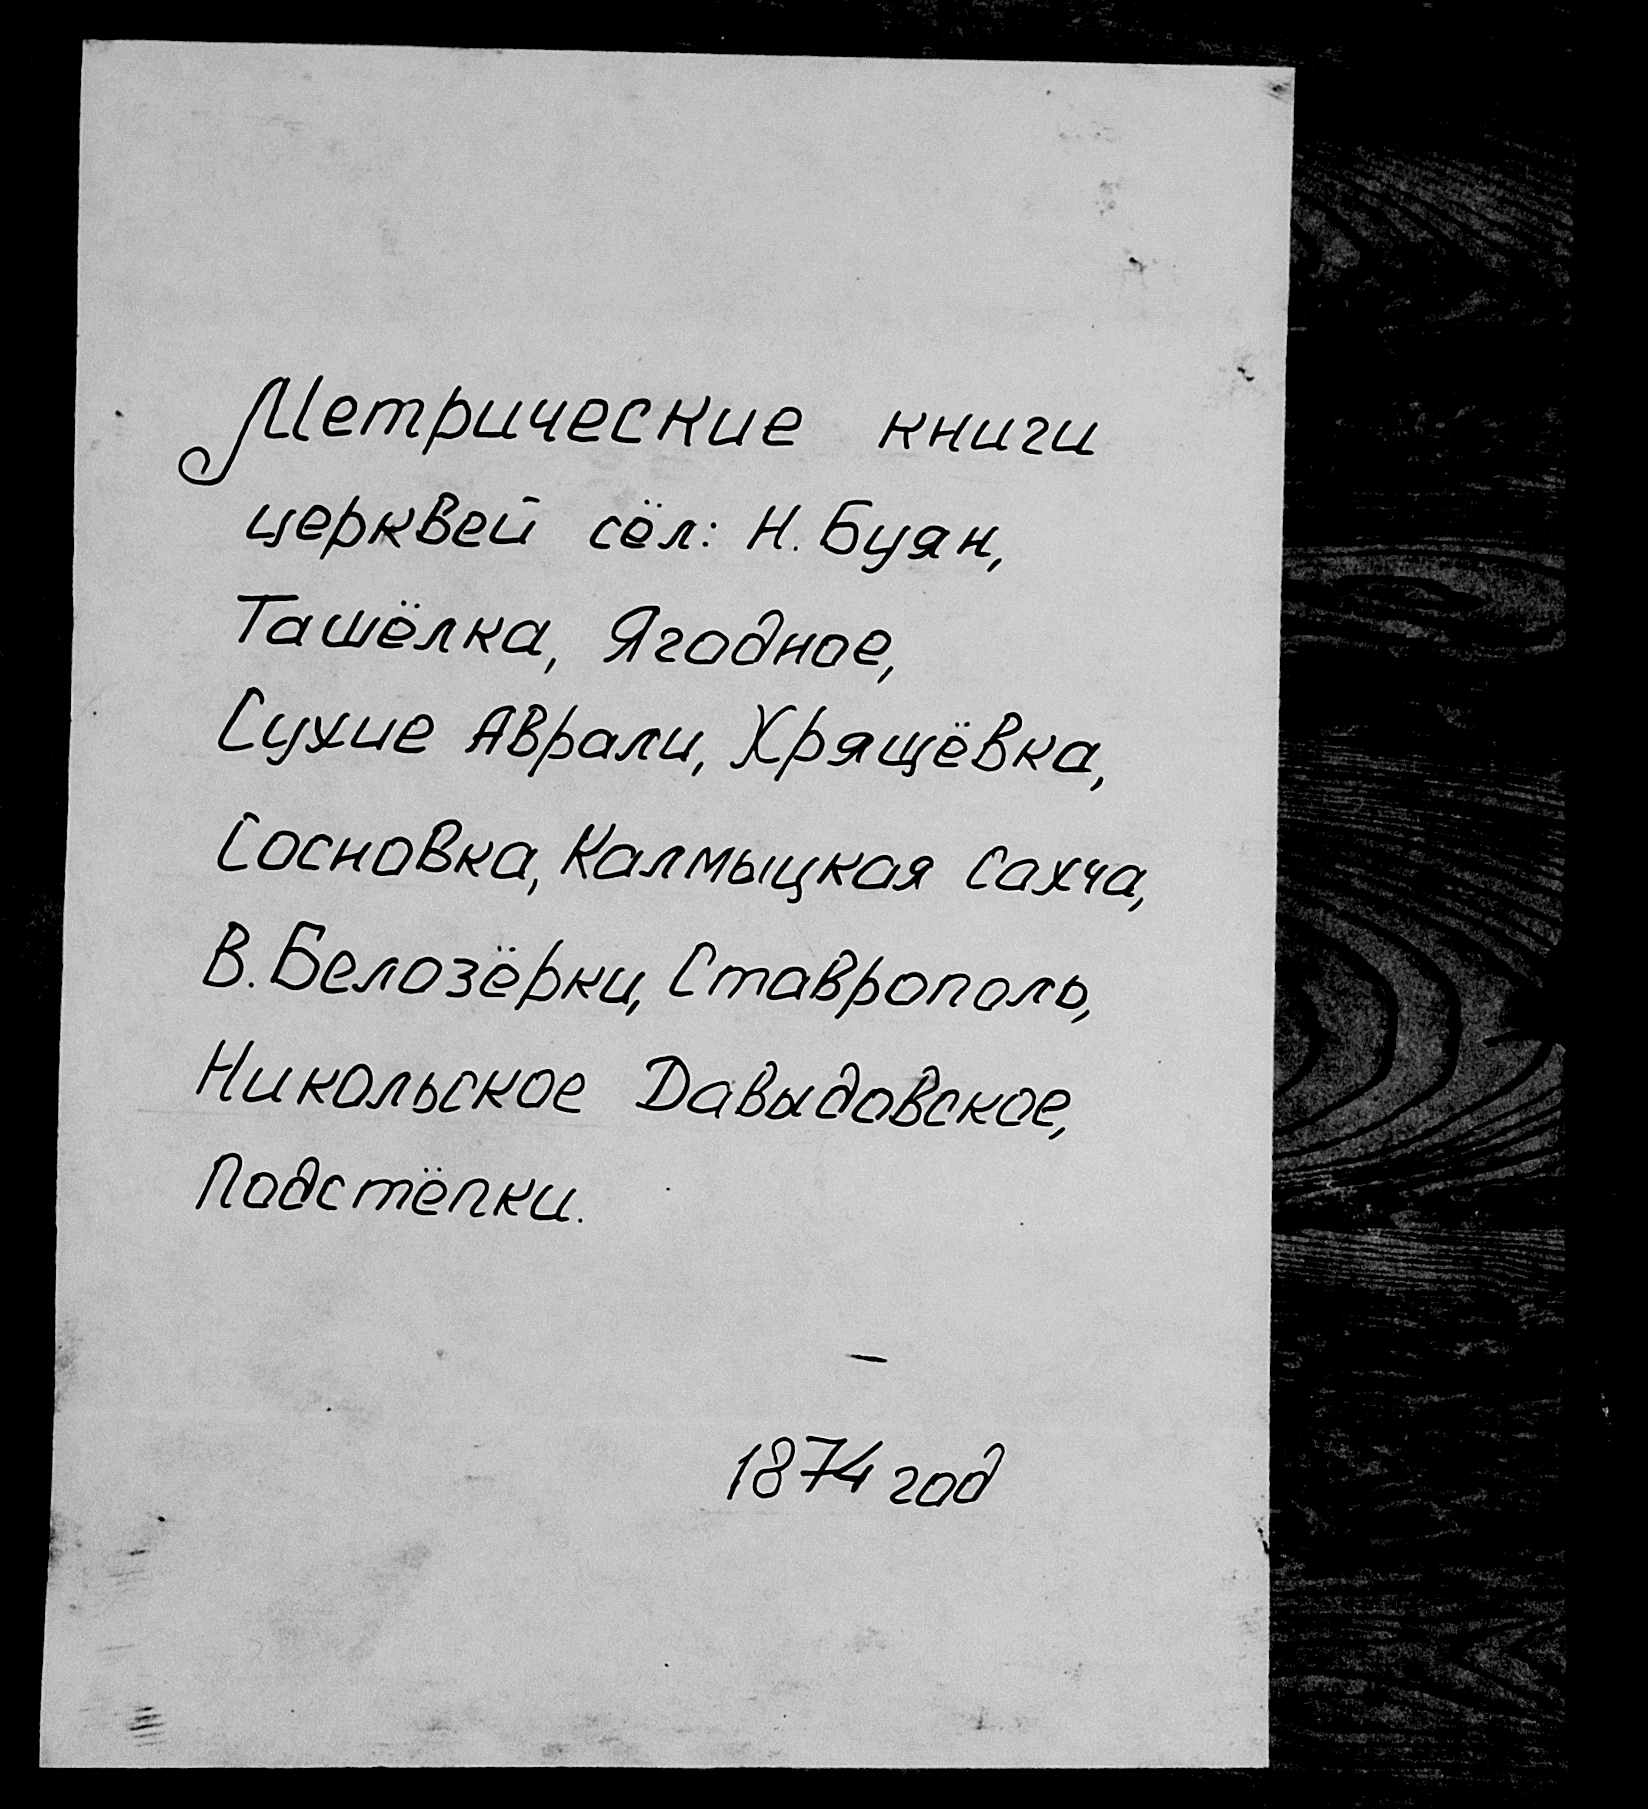 Метрические книги
церквей сёл: Н. Буян,
Ташёлка, Ягодное,
Сухие Аврали, Хрящёвка,
Сосновка, Калмыцкая Сахча,
В. Белозёрки, Ставрополь,
Никольское Давыдовское,
Подстёпки.
–
1874 год